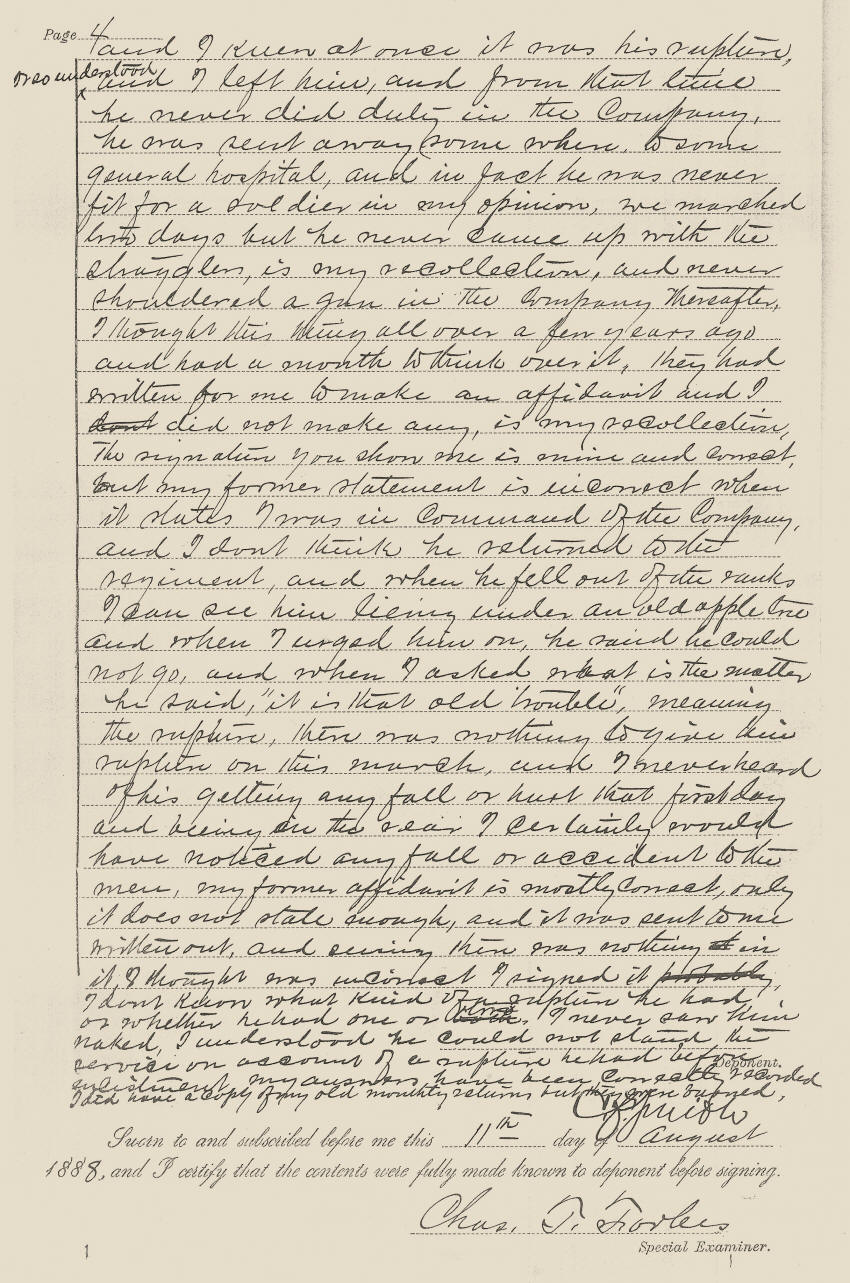 Page 4
and I knew at once it was his rupture,
or so understood
and I left him, and from that time
he never did duty in the Company,
he was sent away some where, to some
general hospital, and in fact he was never
fit for a soldier in my opinion, we marched
two days but he never came up with the
stragglers, is my recollection, and never
shouldered a gun in the Company thereafter,
I thought this thing all over a few years ago
and had a month to think over it, they had
written for me to make an affidavit and I
dont did not make any, is my recollection,
The signature you show me is mine and correct,
but my former statement is incorrect when
it states I was in Command of the Company,
and I dont think he returned to the
regiment, and when he fell out of the ranks
I can see him lieing under an old apple tree
and when I urged him on, he said he could
not go, and when I asked what is the matter
he said, "it is that old trouble", meaning
the rupture, there was nothing to give him
rupture on this march, and I never heard
of his getting any fall or hurt that first day
and being in the rear I certainly would
have noticed any fall or accident to the
men, my former affidavit is mostly correct, only
it does not state enough, and it was sent to me
written out, and seeing there was nothing in
it, I thought was incorrect I signed it probably,
I dont know what kind of a rupture he had
or whether he had one or I never saw him
naked, I understood he could not stand the
service on account of a rupture he had before
Deponent.
enlistment, my answers have been correctly recorded
I did have a copy of my old monthly returns but they were burned,
Sworn to and subscribed before me this 11th day of August
1888, and I certify that the contents were fully made known to deponent before signing.
Chas. T. Forbes
Special Examiner.
1